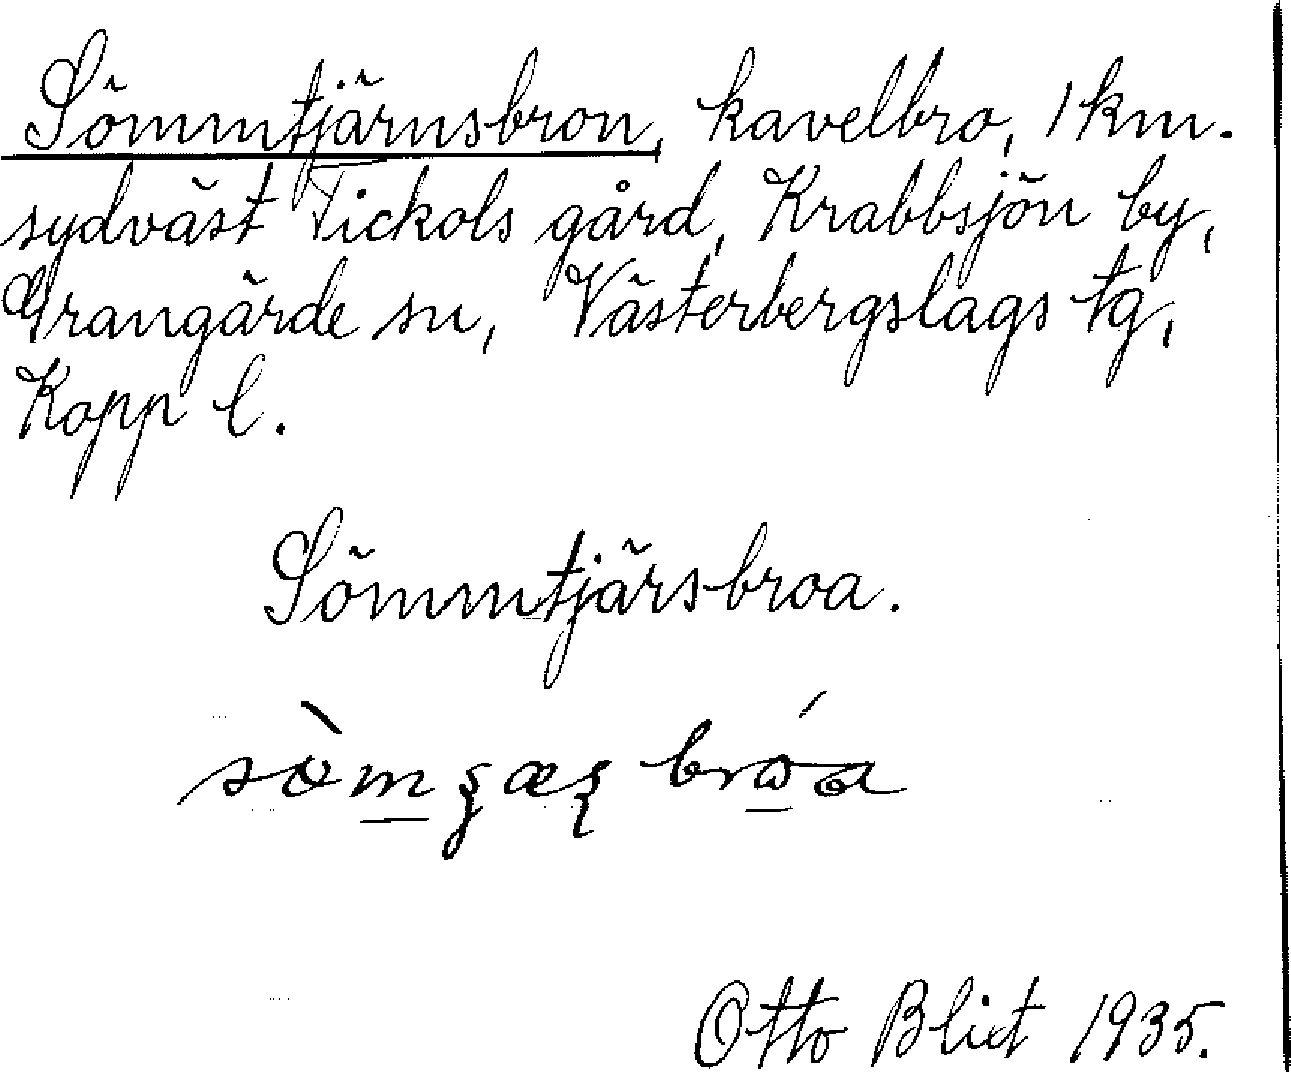 Sömmtjärnsbron, kavelbro, 1 km.
sydväst Tickols gård, Krabbsjön by,
Grangärde sn, Västerbergslags tg,
Kopp l.
Sömmtjärsbroa.
Otto Blixt 1935.